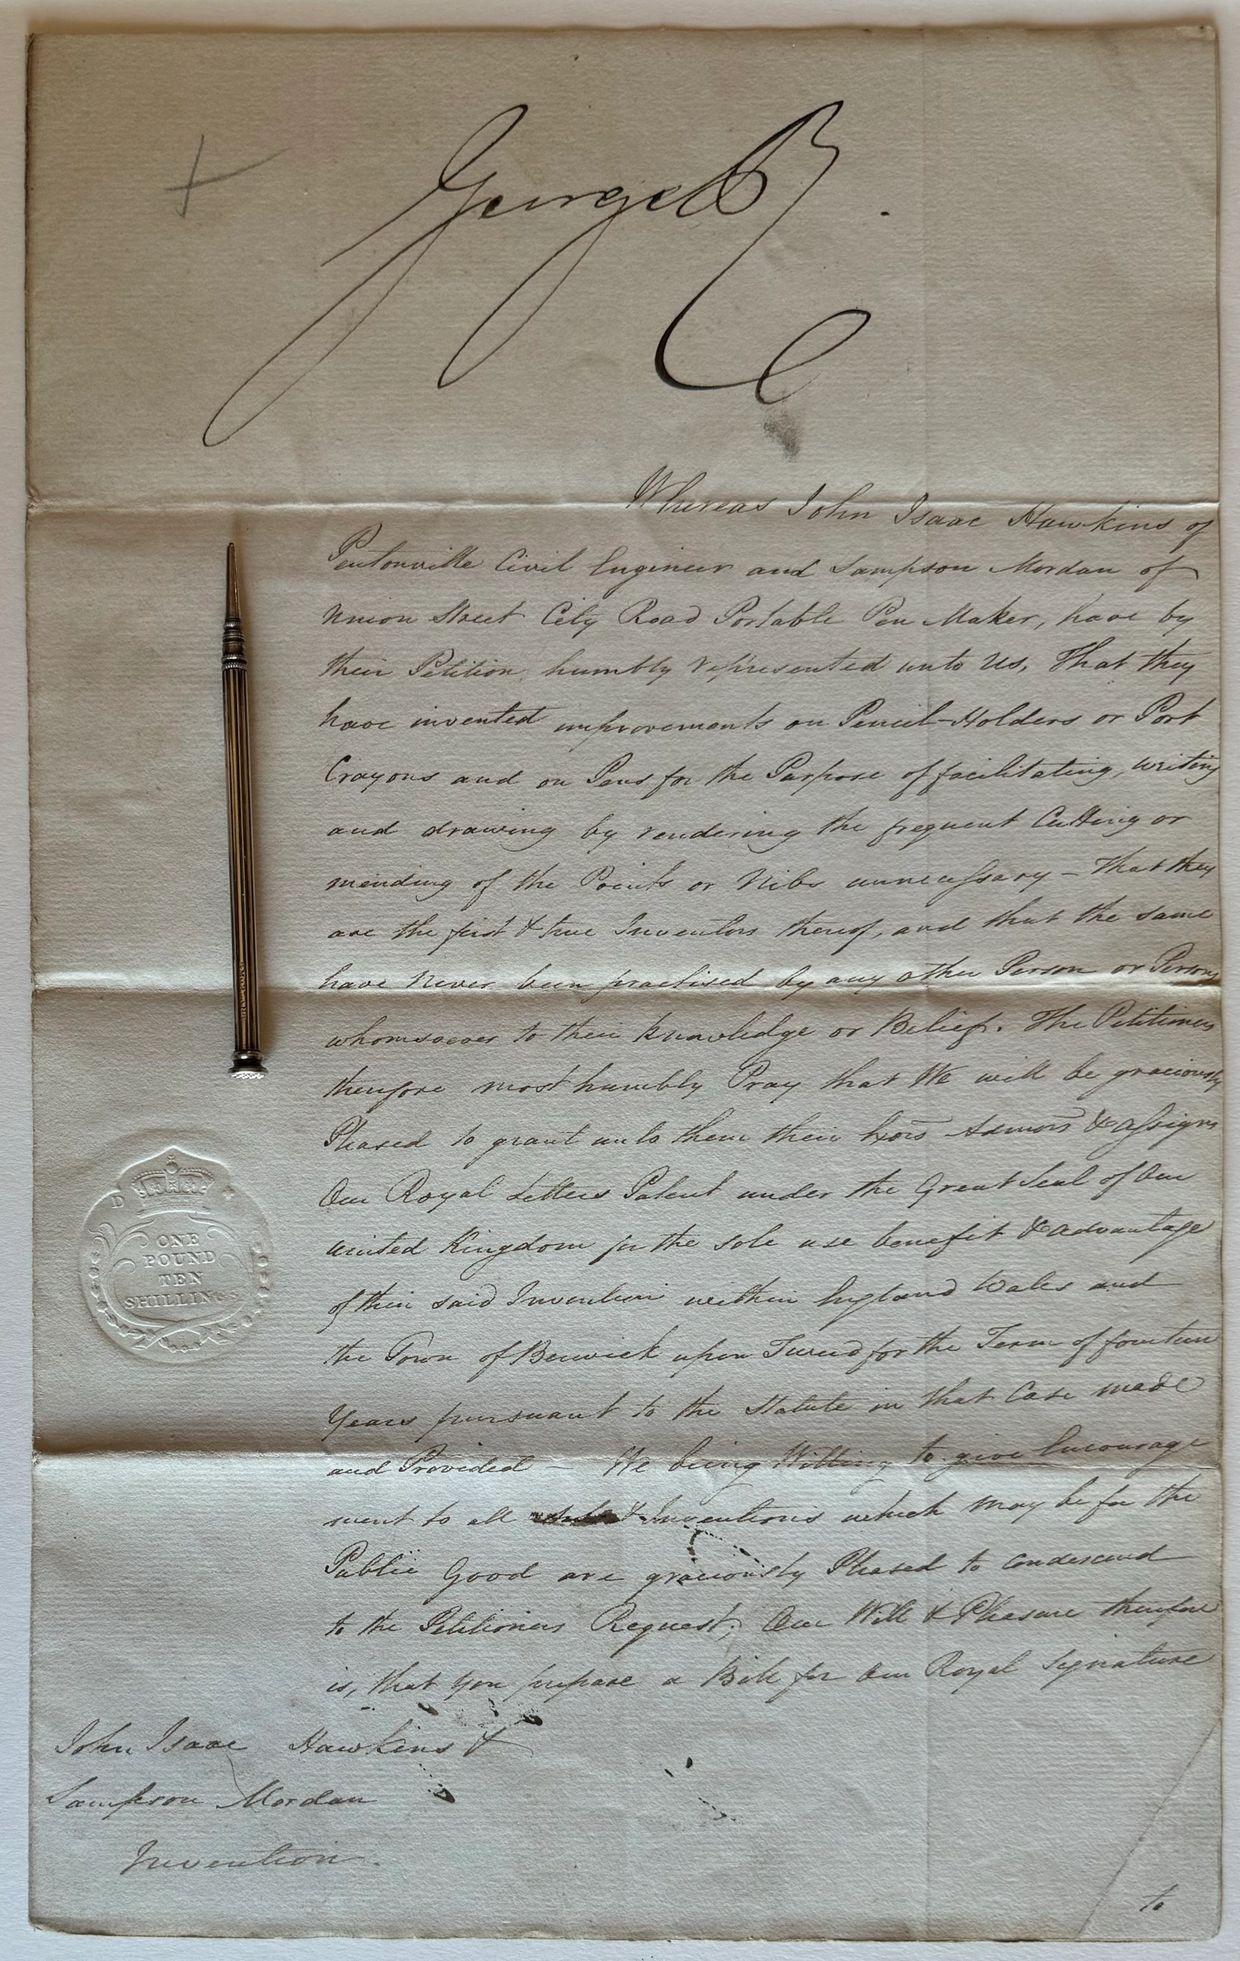 George R
Whereas John Isaac Hawkins of
Pentonville Civil Engineer and Sampson Mordan of
Union Street City Road Portable Pen Maker, have by
their Petition humbly represented unto Us, That they
have invented improvements on Pencil-Holders or Port
Crayons and on Pens for the Purpose of facilitating, writing
and drawing by rendering the frequent Cutting or
mending of the Points or Nibs unnecessary – That they
are the first & true Inventors thereof, and that the same
have Never been practised by any other Person or Persons
whomsoever to their knowledge or Belief. The Petitioners
therefore most humbly Pray that We will be graciously
Pleased to grant unto them their Exors Admors & assigns
Our Royal Letters Patent under the Great Seal of Our
United Kingdom for the sole use benefit & advantage
of their said Invention within England Wales and
the Town of Berwick upon Tweed for the Term of fourteen
Years pursuant to the Statute in that Case made
and Provided – We being Willing to give Encourage
ment to all & Inventions which may be for the
Public Good are graciously Pleased to condescend
to the Petitioners Request; Our Will & Pleasure therefore
is, that You prepare a Bill for Our Royal Signature
to
D
ONE
POUND
TEN
SHILLINGS
John Isaac Hawkins &
Sampson Mordan
Invention.